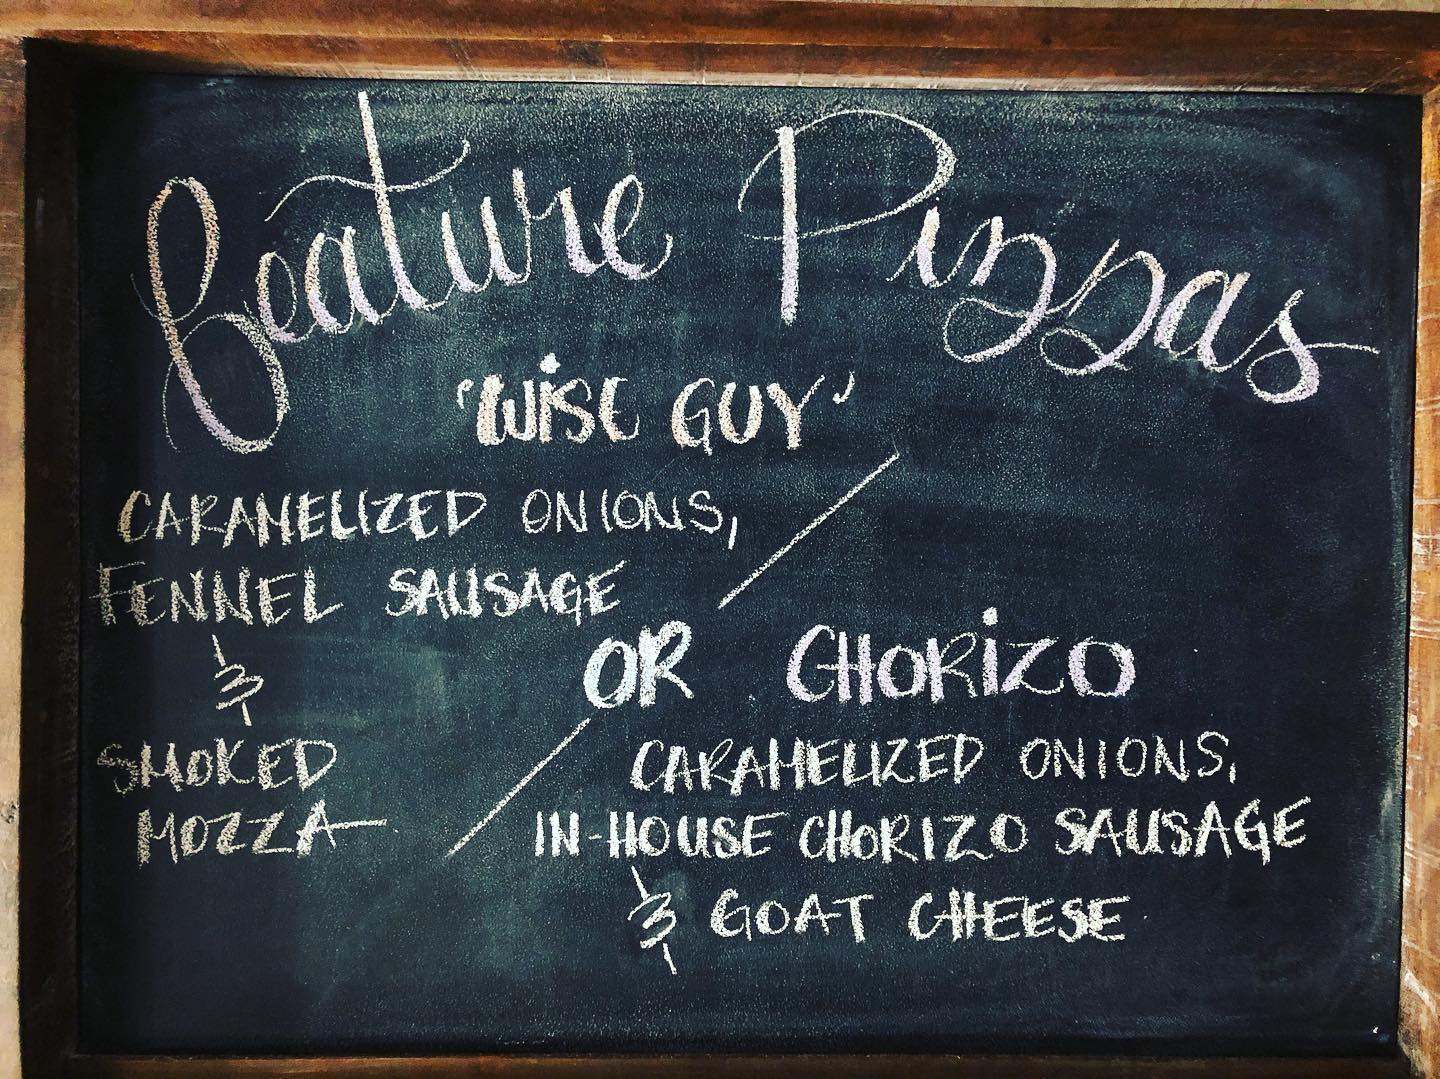 feature Pizzas
'WiSE GUY'
CARAMELIZED ONIONS,
FENNEL SAUSAGE
&
SMOKED
MOZZA
OR CHORiZO
CARAMELIZED ONIONS,
IN-HOUSE CHORIZO SAUSAGE
& GOAT CHEESE